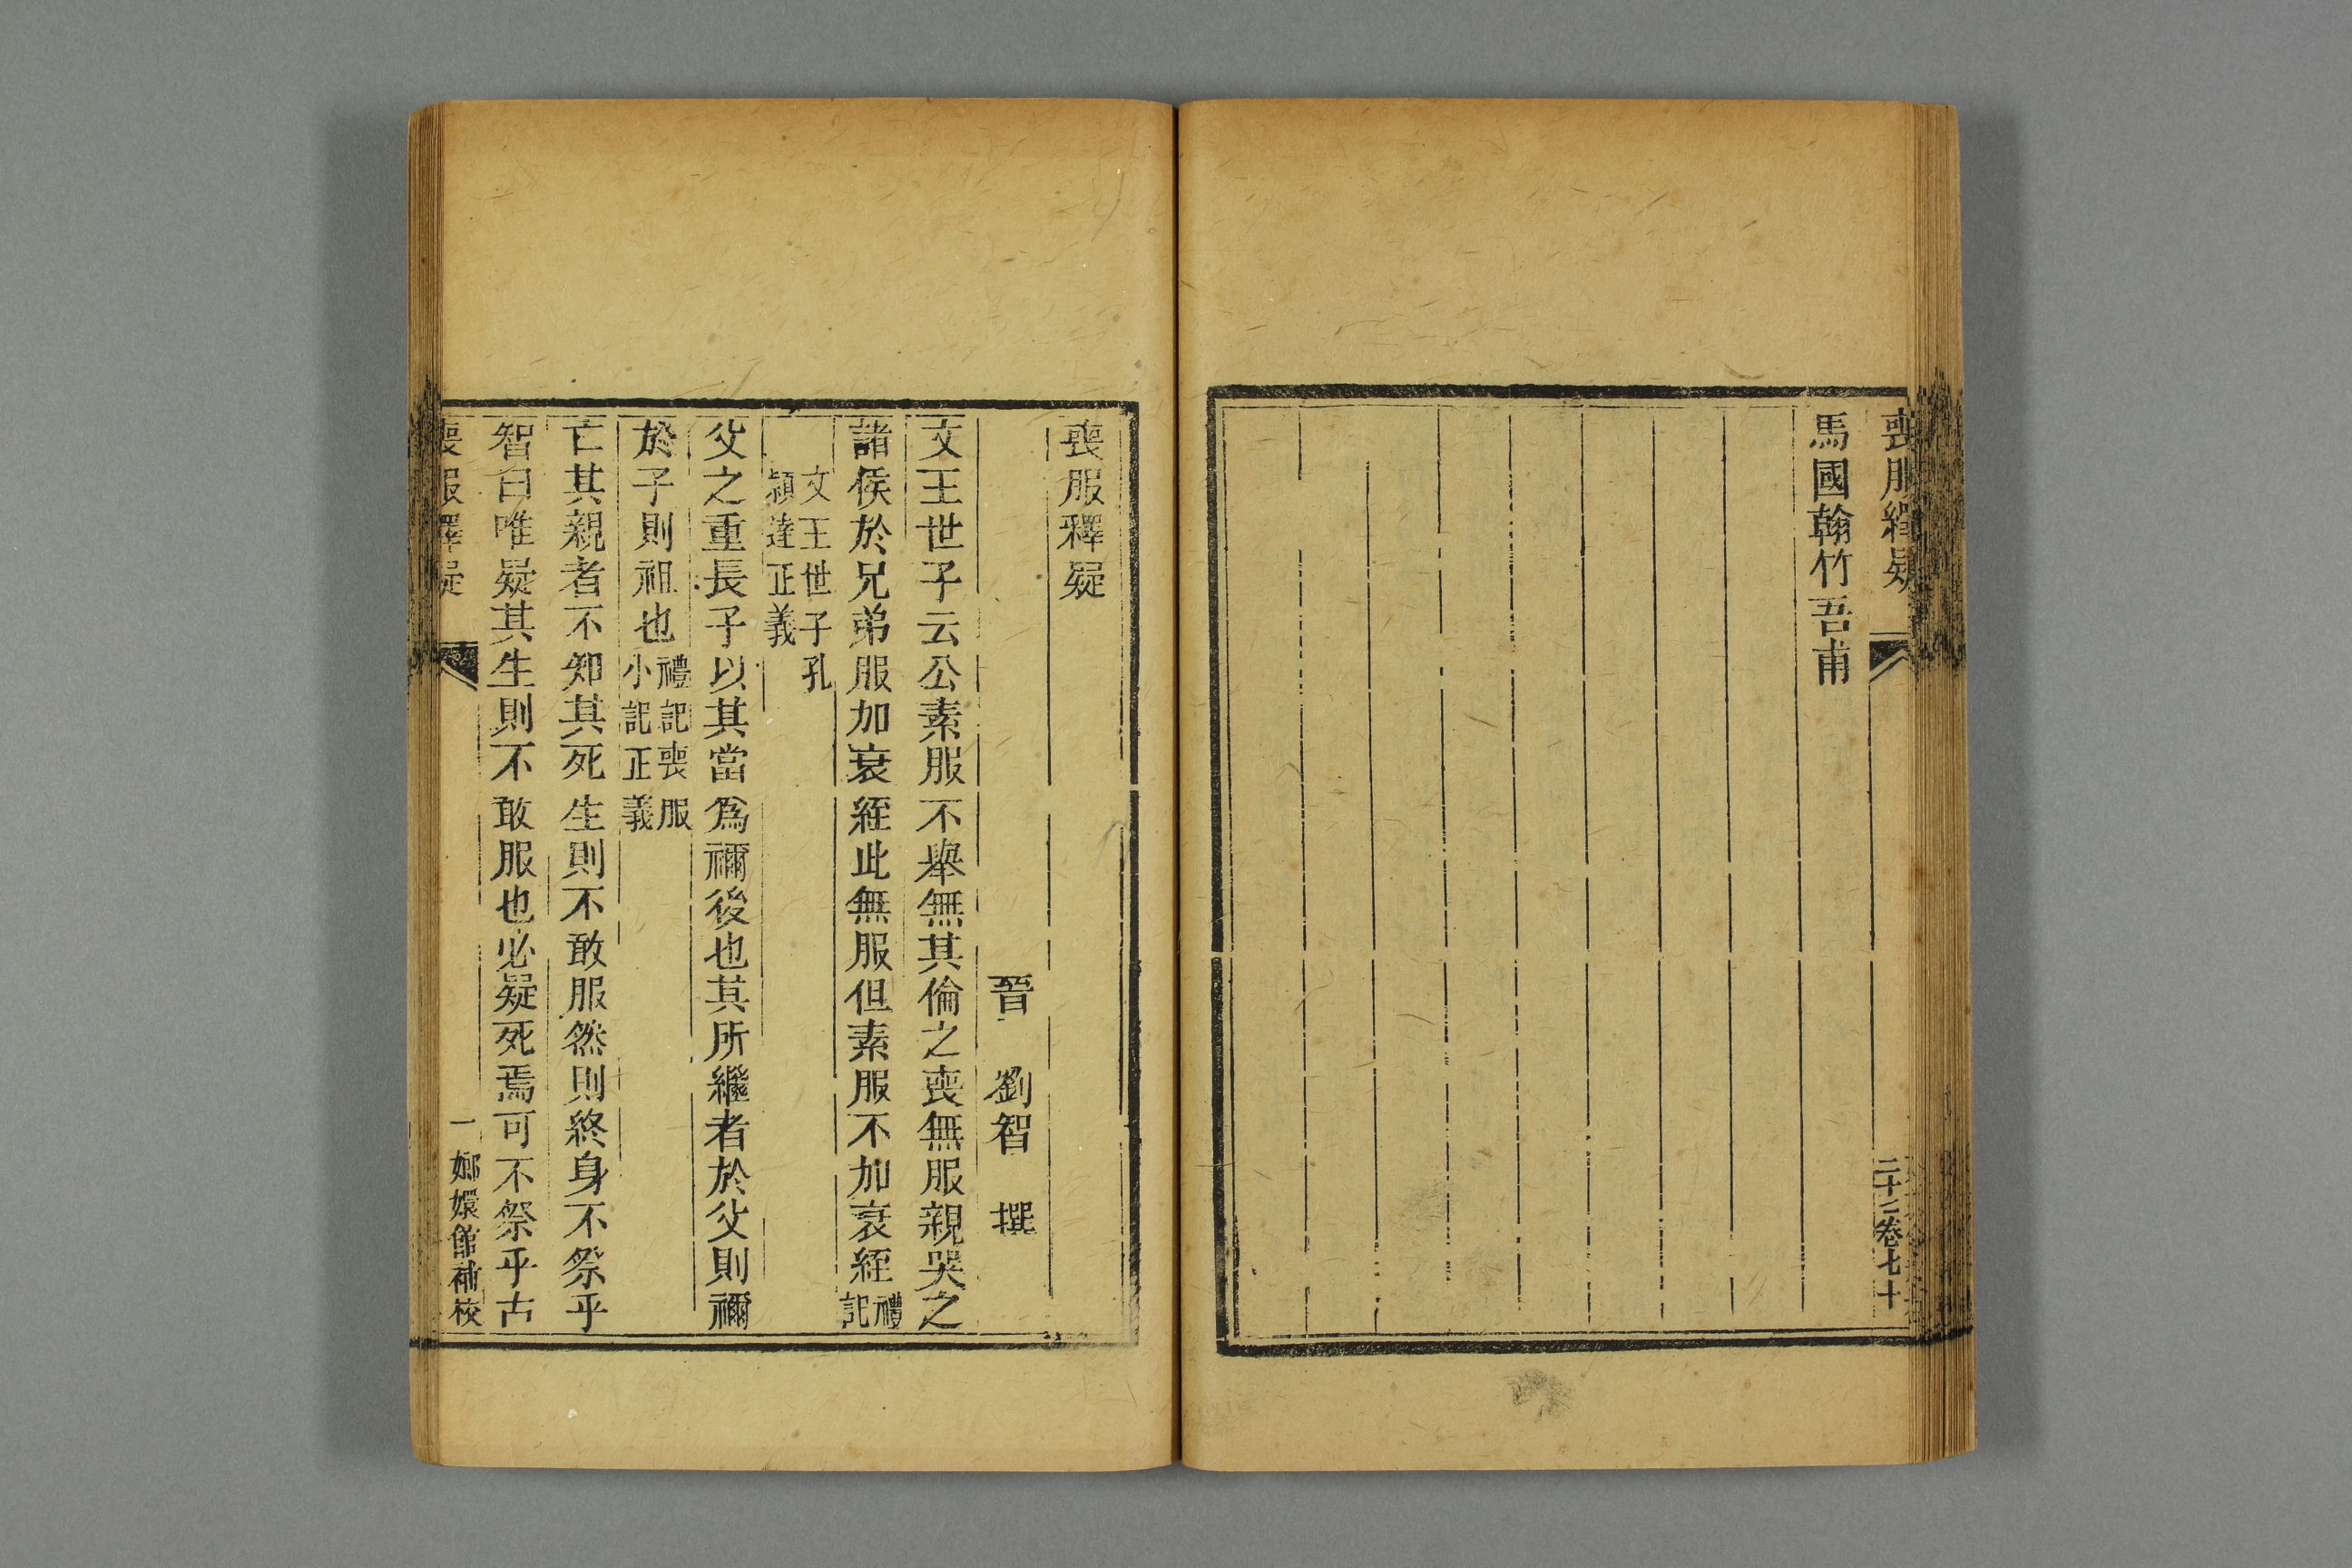 喪服釋疑
二十二卷七十
馬國翰竹吾甫
喪服釋疑
晉 劉智 撰
文王世子云公素服不舉無其倫之喪無服親哭之
諸侯於兄弟服加衰絰此無服但素服不加衰絰禮記
文王世子孔
穎達正義
父之重長子以其當爲禰後也其所繼者於父則禰
於子則祖也禮記喪服小記正義
亡其親者不知其死生則不敢服然則終身不祭乎
智曰唯疑其生則不敢服也必疑死焉可不祭乎古
喪服釋疑
一 嫏嬛館補校